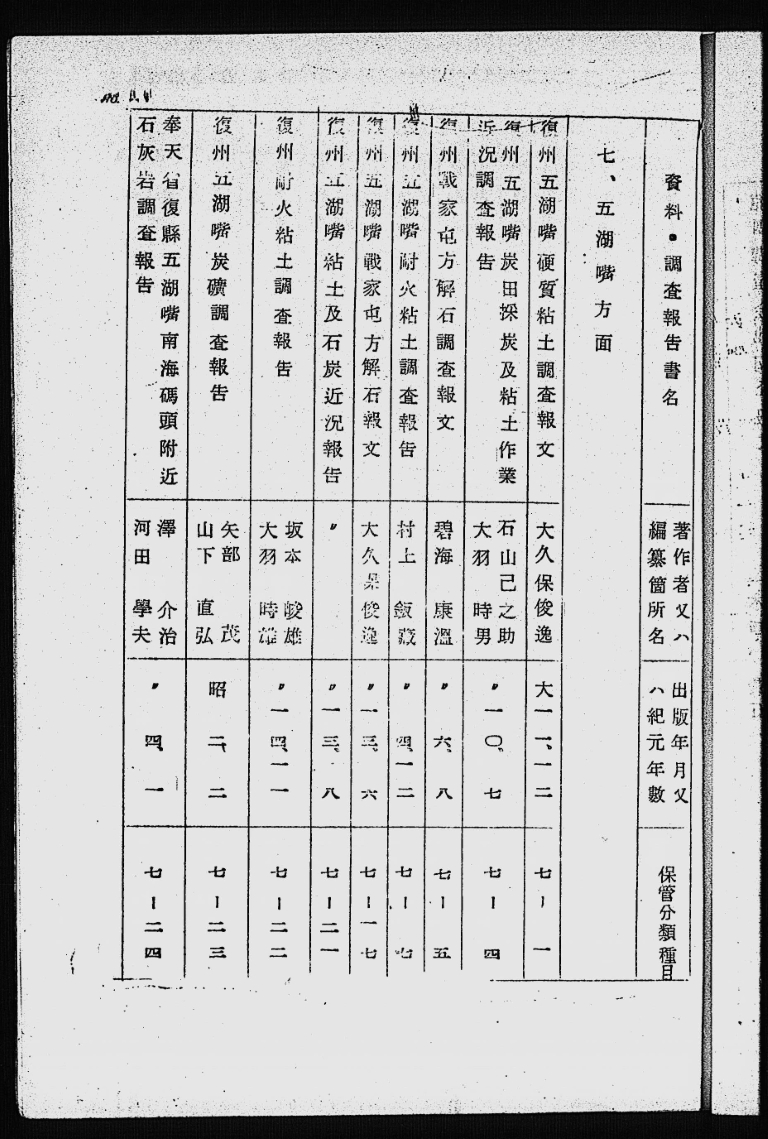 資料・調査報告書名
著作者又ハ
編纂箇所名
出版年月又
ハ紀元年數
保管分類種目
七、五湖嘴方面
復州五湖嘴硬質粘土調査報文
大久保俊逸
大一一、一二
七ー一
復州五湖嘴炭田採炭及粘土作業
近況調査報告
石山己之助
大羽時男
〃一〇、七
七ー四
復州戰家屯方解石調査報文
碧海康溫
〃六、八
七ー五
復州五湖嘴耐火粘土調査報告
村上飯藏
〃四、一二
七ー七
復州五湖嘴戰家屯方解石報文
大久保俊逸
〃一三、六
七ー一七
復州五湖嘴粘土及石炭近況報告
〃
〃一三、八
七ー二一
復州耐火粘土調査報告
坂本峻雄
大羽時雄
〃一四、一一
七ー二二
復州五湖嘴炭礦調査報告
矢部茂
山下直弘
昭二、二
七ー二三
奉天省復縣五湖嘴南海碼頭附近
石灰岩調査報告
澤介治
河田學夫
〃四、一
七ー二四